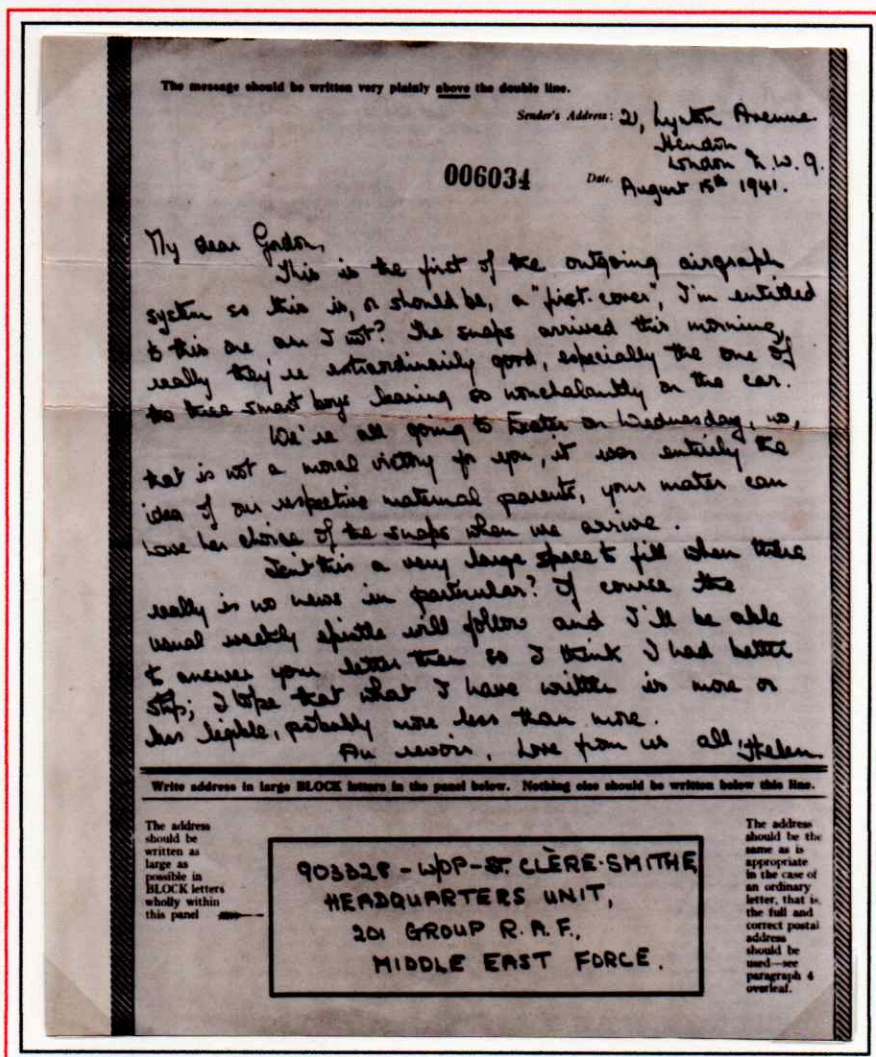 The message should be written very plainly above the double line.
Sender's Address: 21, Lynton Avenue
Hendon
London N.W.9.
006034
Date. August 15th 1941.
My dear Gordon,
This is the first of the outgoing airgraph
system so this is, or should be, a "first-cover", I'm entitled
to this one am I not? The snaps arrived this morning,
really they're extraordinarily good, especially the one of
the three smart boys leaning so nonchalantly on the car.
We're all going to Exeter on Wednesday, no,
that is not a moral victory for you, it was entirely the
idea of our respective maternal parents, your mater can
have her choice of the snaps when we arrive.
Isn't this a very large space to fill when there
really is no news in particular? Of course the
usual weekly epistle will follow and I'll be able
to answer your letter then so I think I had better
stop; I hope that what I have written is more or
less legible, probably more less than more.
Au revoir, Love from us all, Helen
Write address in large BLOCK letters in the panel below. Nothing else should be written below this line.
The address
should be
written as
large as
possible in
BLOCK letters
wholly within
this panel
903328 - W/OP - ST. CLÈRE-SMITHE,
HEADQUARTERS UNIT,
201 GROUP R.A.F.,
MIDDLE EAST FORCE.
The address
should be the
same as is
appropriate
in the case of
an ordinary
letter, that is,
the full and
correct postal
address
should be
used—see
paragraph 4
overleaf.